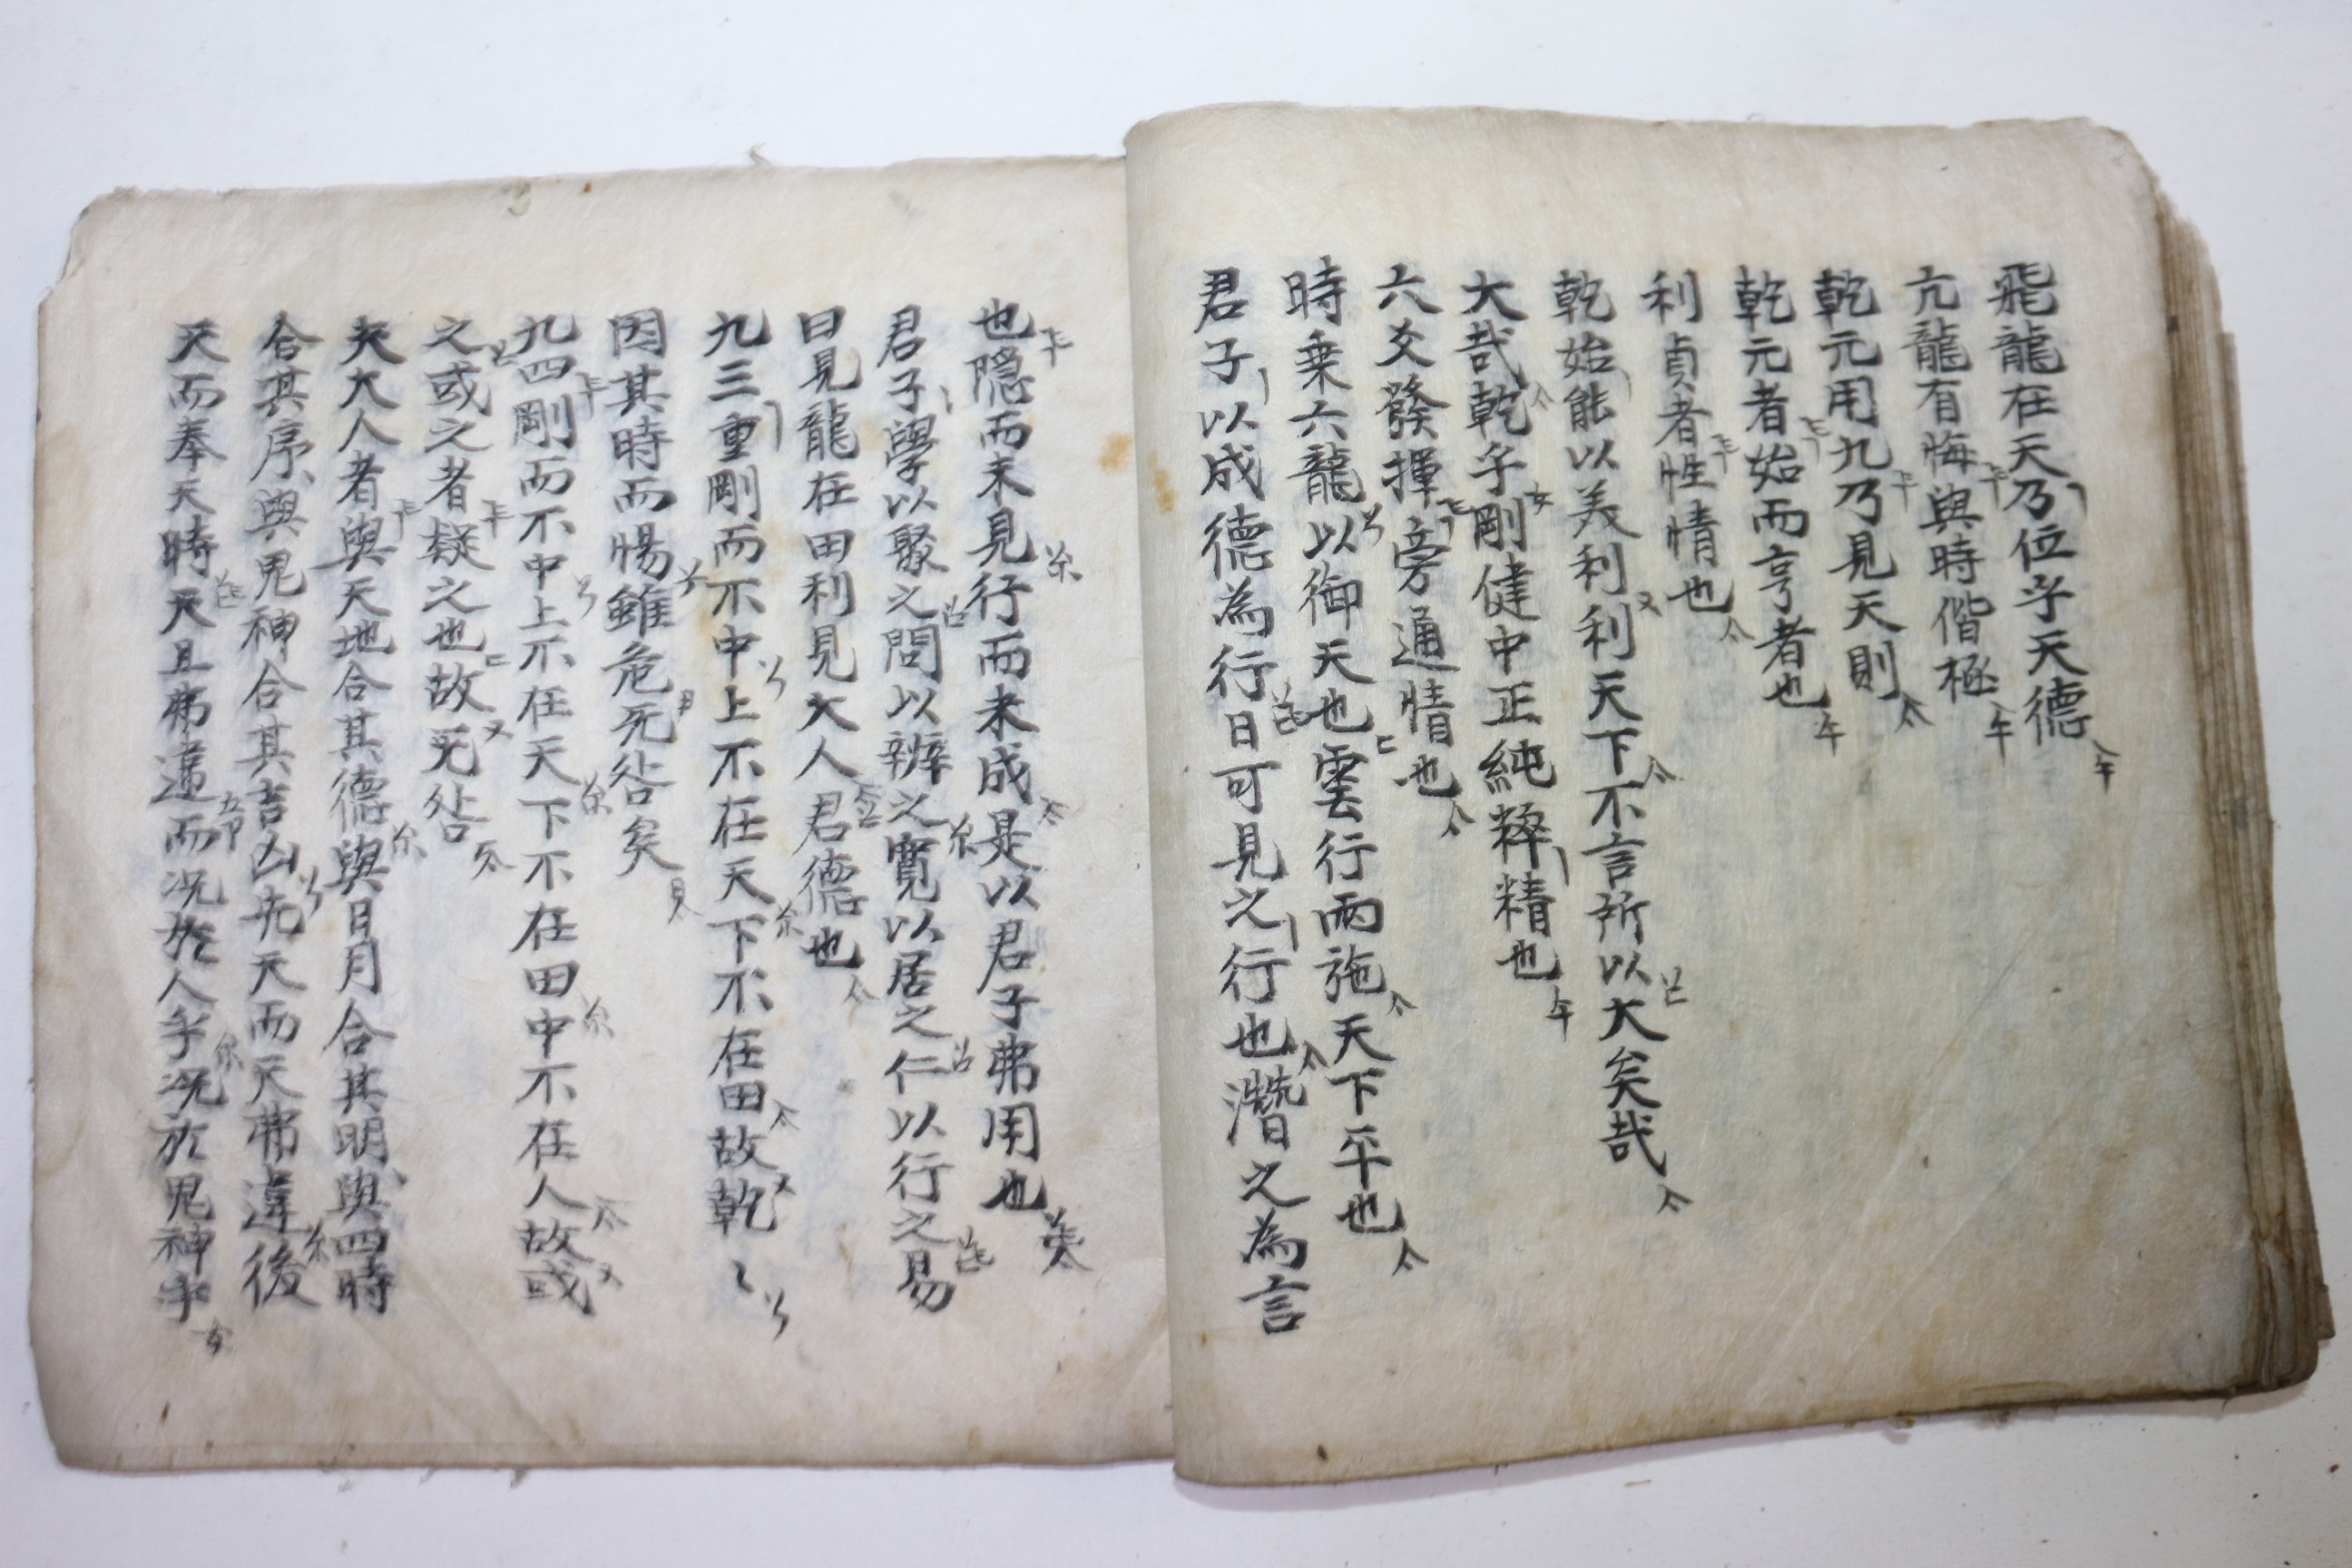 飛龍在天乃位乎天德
亢龍有悔與時偕極
乾元用九乃見天則
乾元者始而亨者也
利貞者性情也
乾始能以美利利天下不言所以大矣哉
大哉乾乎剛健中正純粹精也
六爻發揮旁通情也
時乗六龍以御天也雲行雨施天下平也
君子以成德為行日可見之行也潛之為言
也隐而未見行而未成是以君子弗用也
君子學以聚之問以辨之寬以居之仁以行之易
曰見龍在田利見大人君德也
九三重剛而不中上不在天下不在田故乾〻
因其時而惕雖危无咎矣
九四剛而不中上不在天下不在田中不在人故或
之或之者疑之也故无咎
夫大人者與天地合其德與日月合其明與四時
合其序與鬼神合其吉凶先天而天弗違後
天而奉天時天且弗違而况於人乎况於鬼神乎